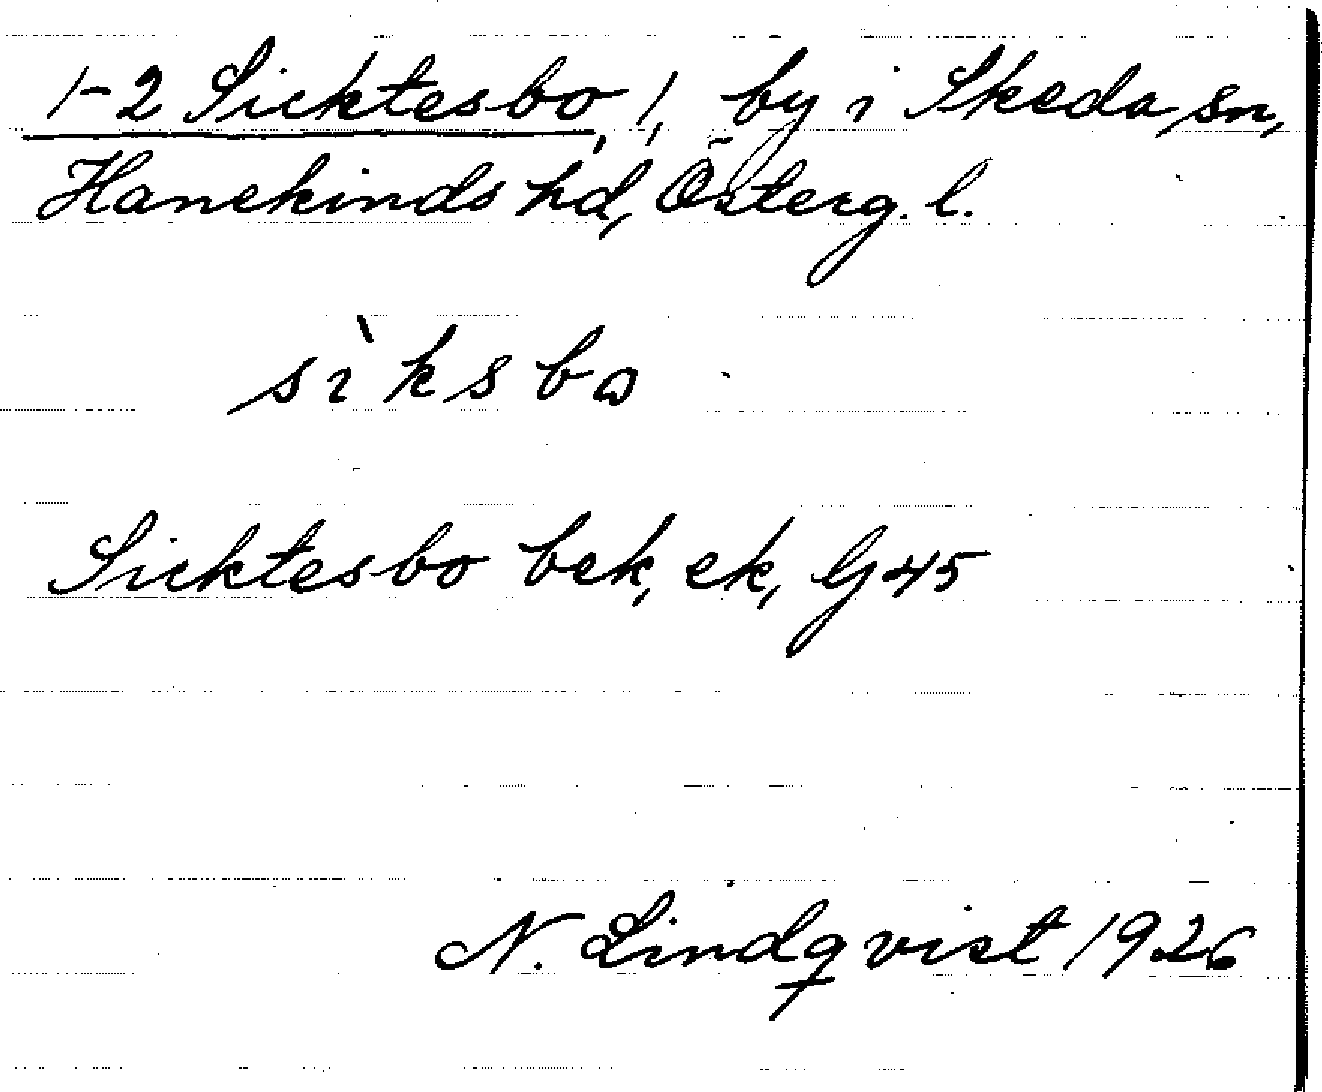 1-2 Sicktesbo, 1, by i Skeda sn,
Hanekinds hd, Österg. l.
sìksbω
Sicktesbo bek, ek, Gj 45
N. Lindqvist 1926